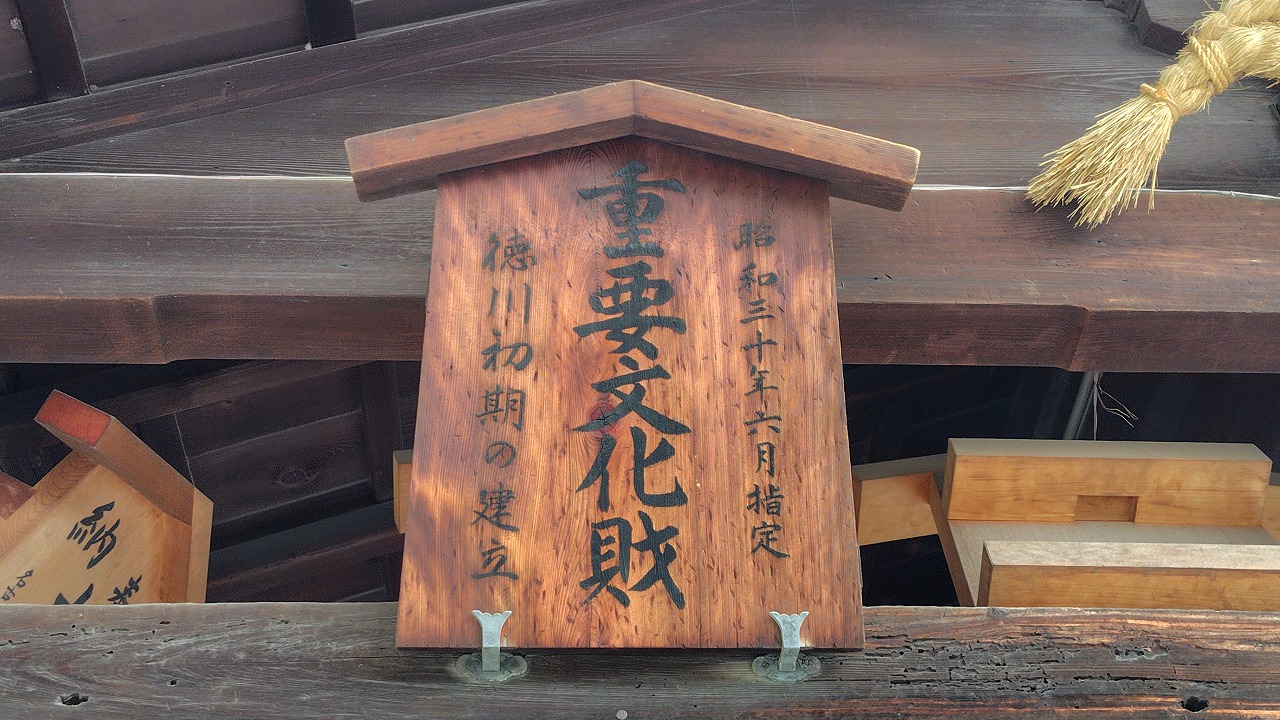 昭和三十年六月指定
重要文化財
徳川初期の建立
納